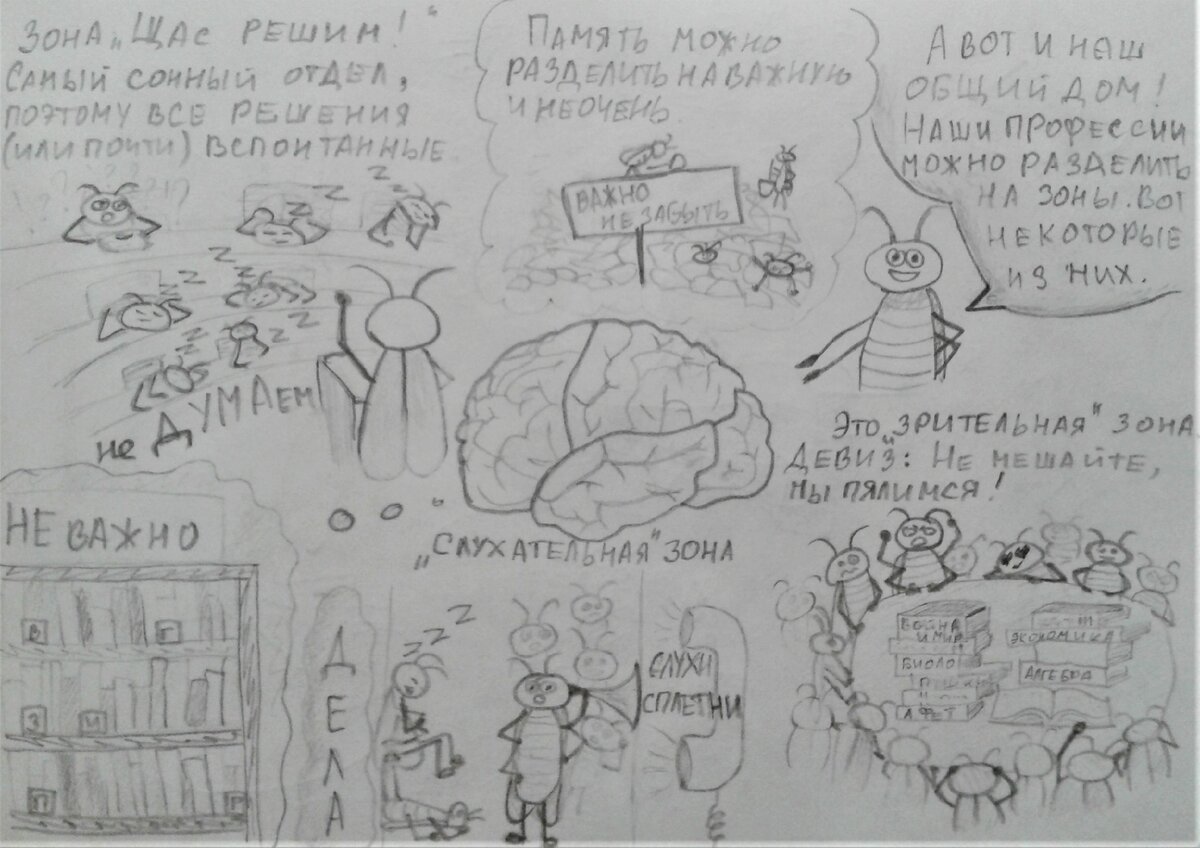 ЗОНА „ЩАС РЕШИМ!“
САМЫЙ СОННЫЙ ОТДЕЛ,
ПОЭТОМУ ВСЕ РЕШЕНИЯ
(ИЛИ ПОЧТИ) ВСПОНТАННЫЕ
не ДУМАЕМ
ПАМЯТЬ МОЖНО
РАЗДЕЛИТЬ НА ВАЖНУЮ
И НЕ ОЧЕНЬ.
ВАЖНО
НЕ ЗАБЫТЬ
А ВОТ И НАШ
ОБЩИЙ ДОМ!
НАШИ ПРОФЕССИИ
МОЖНО РАЗДЕЛИТЬ
НА ЗОНЫ. ВОТ
НЕКОТОРЫЕ
ИЗ НИХ.
ЭТО „ЗРИТЕЛЬНАЯ“ ЗОНА
ДЕВИЗ: НЕ МЕШАЙТЕ,
МЫ ПЯЛИМСЯ!
ВОЙНА
И МИР
БИОЛО
А ФЕТ
ЭКОНОМИКА
АЛГЕБРА
„СЛУХАТЕЛЬНАЯ“ ЗОНА
ДЕЛА
СЛУХИ
СПЛЕТНИ
НЕ ВАЖНО
В
Г
З
И
П
Р